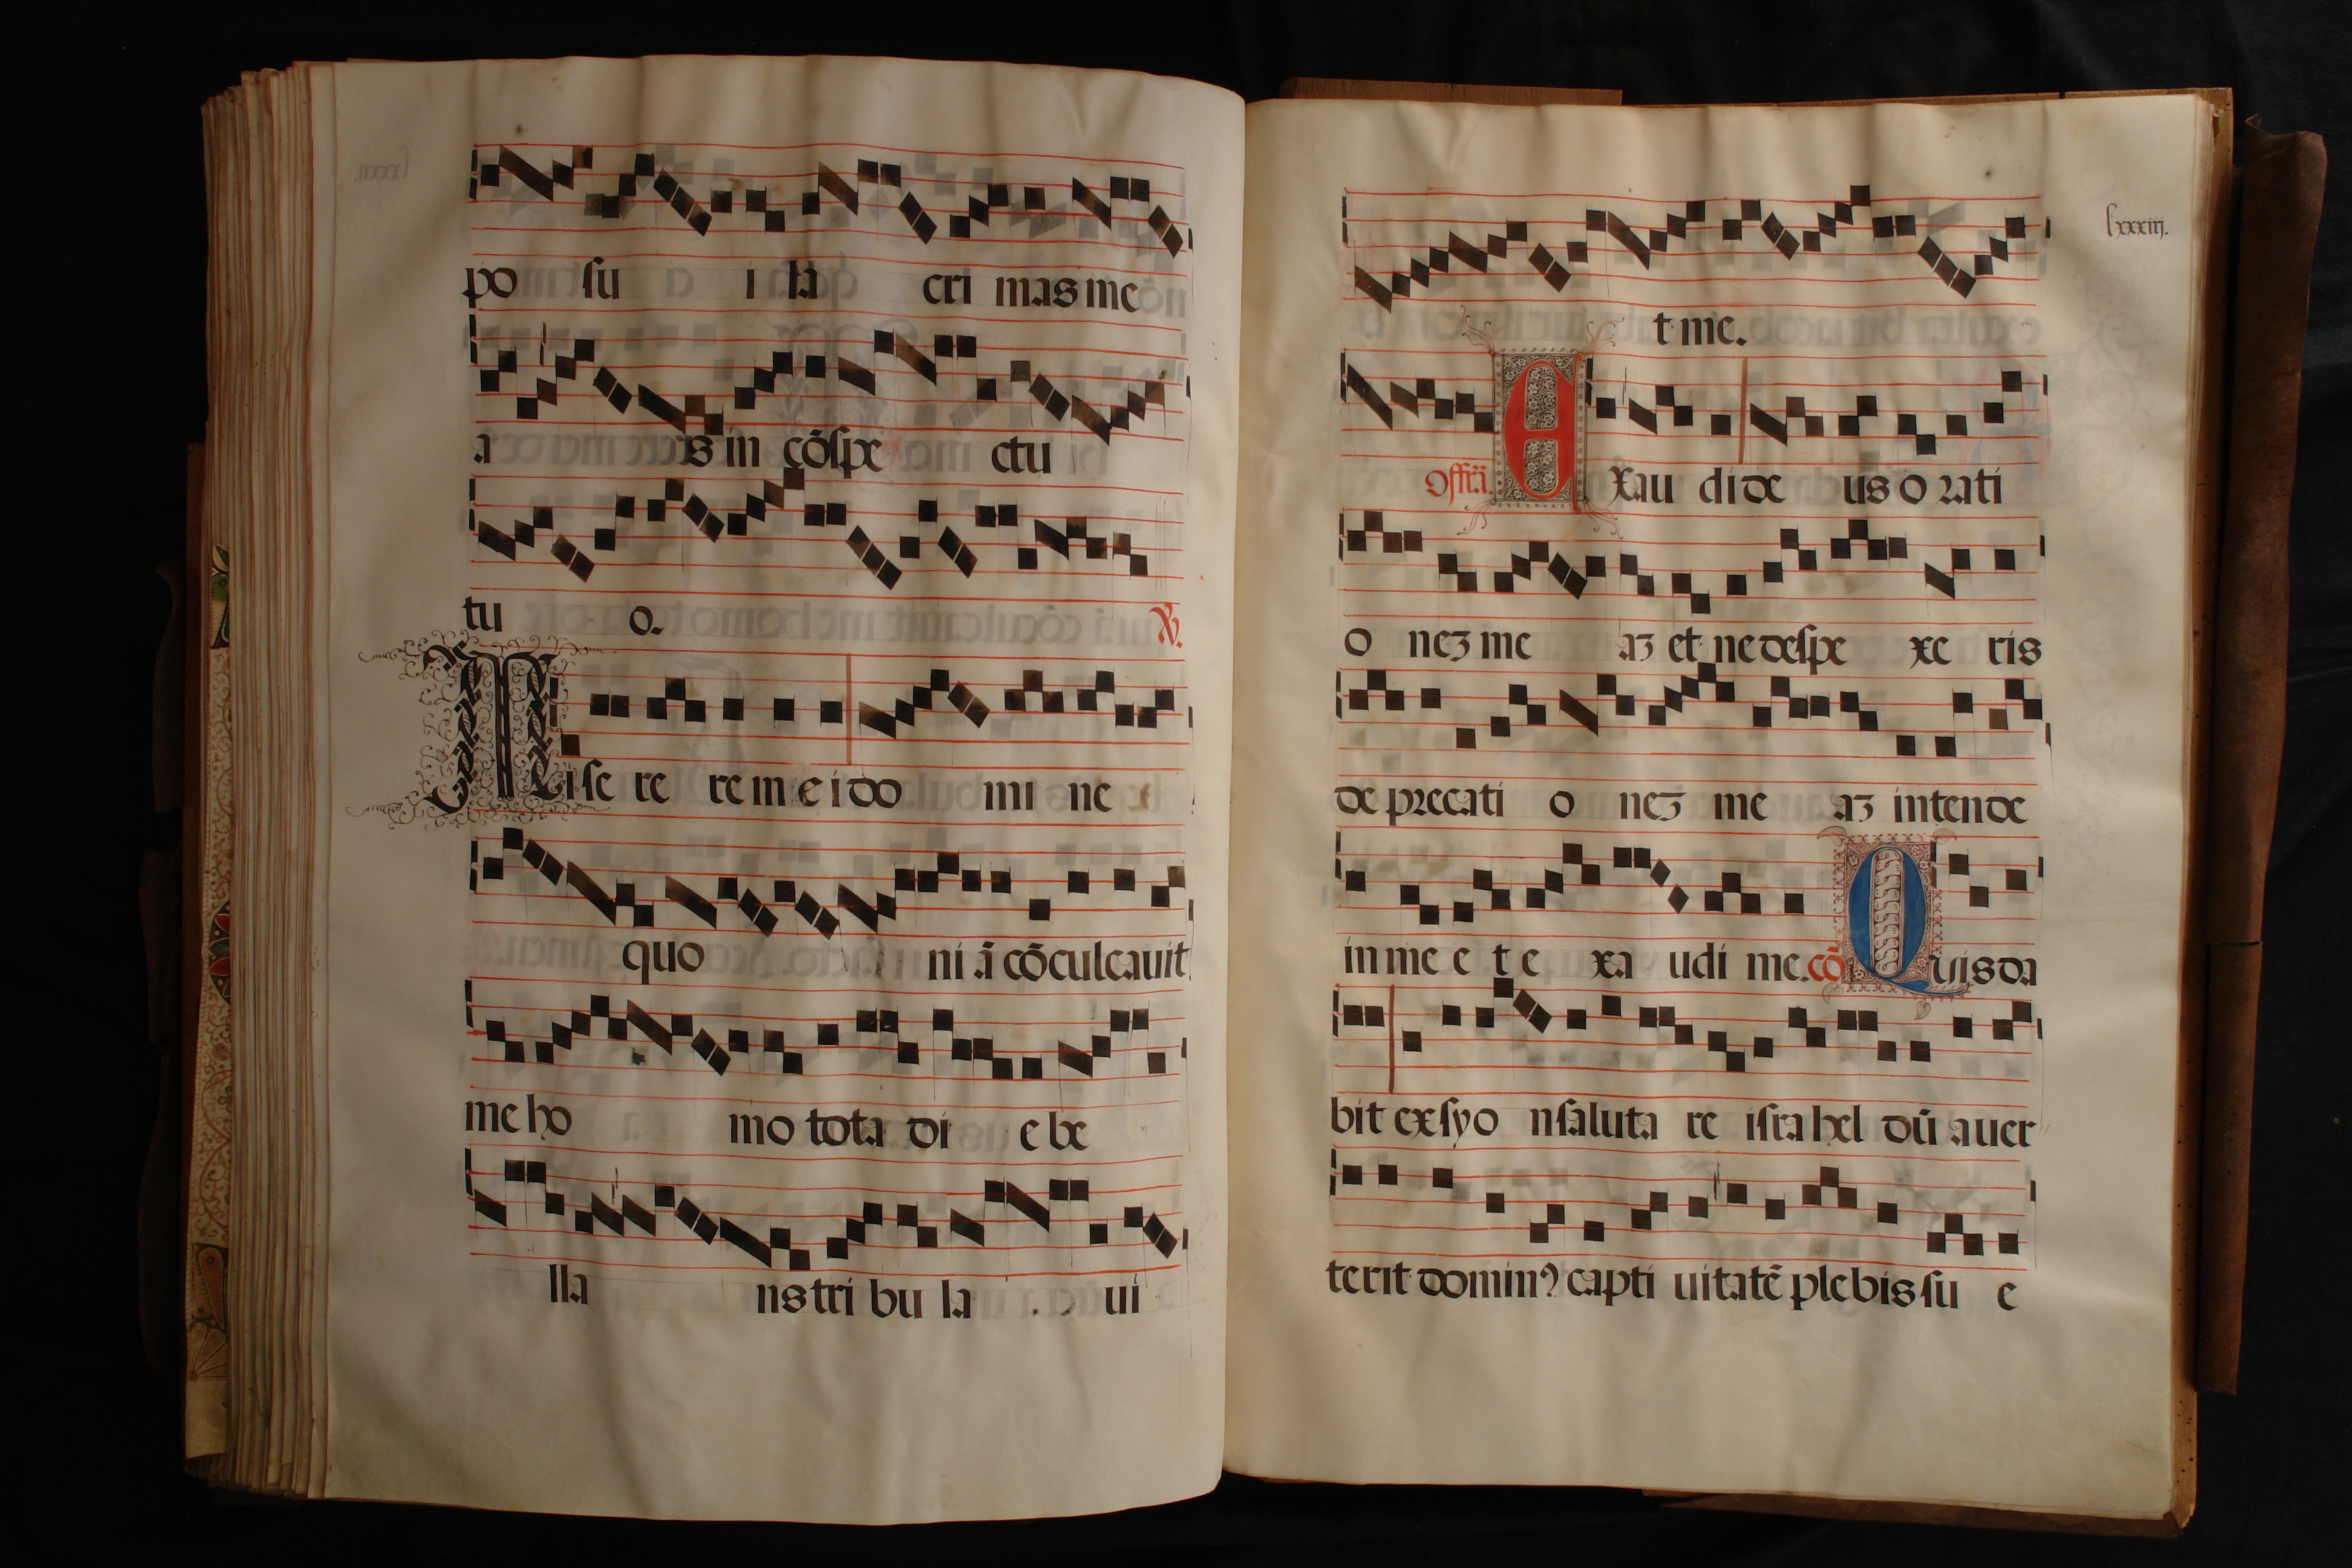 po su i la cri mas me
a s in cōspe ctu
tu o. ℣.
Mise re re m e i do mi ne
quo ni ā cōculcauit
me ho mo tota di e be
lla ns tri bu la ui
lxxxiij.
t me.
Offr̄ā. Exau di de us o rati
o neʒ me aʒ et ne despe xe ris
de precati o neʒ me aʒ intende
in me e t e xa udi me. cō Quis da
bit ex syo n saluta re isra hel dū auer
terit dominꝰ capti uitatē plebis su e